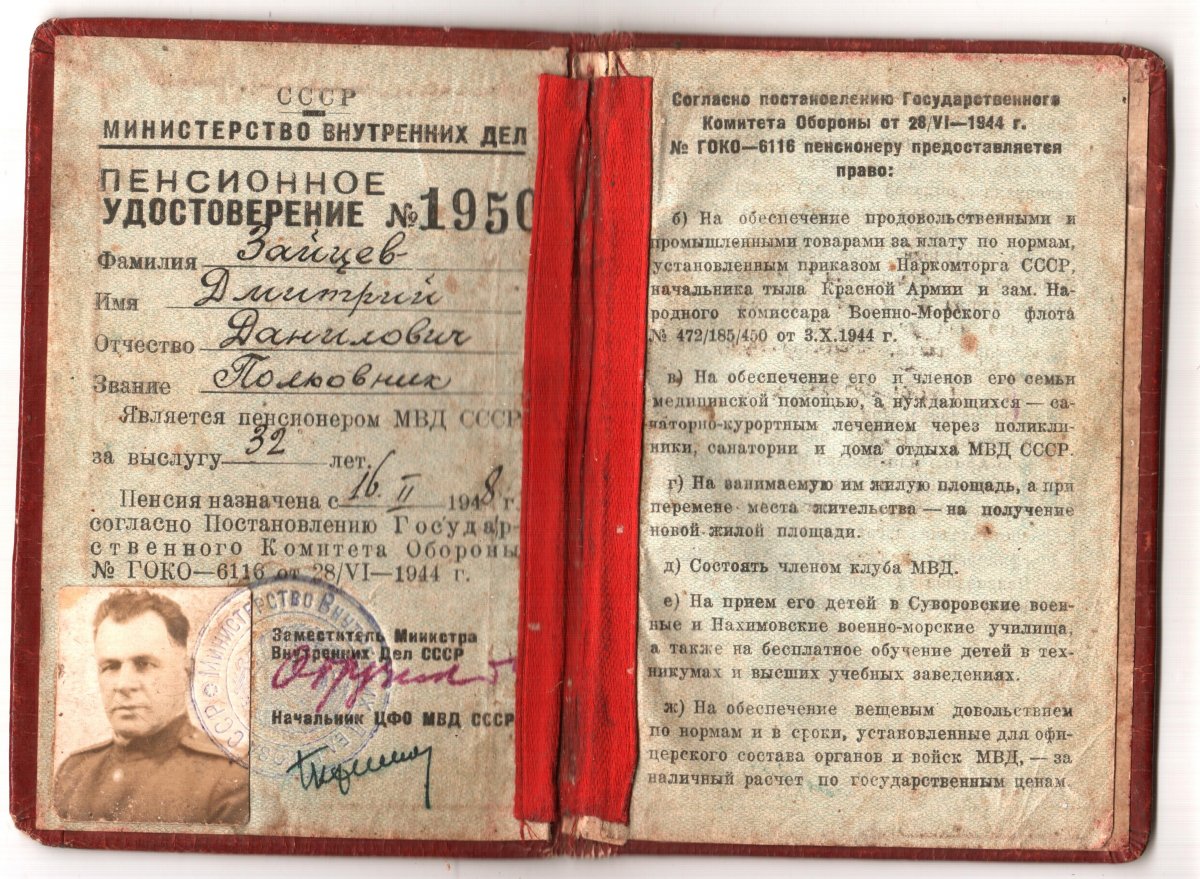 СССР
МИНИСТЕРСТВО ВНУТРЕННИХ ДЕЛ
ПЕНСИОННОЕ
УДОСТОВЕРЕНИЕ №1950
Фамилия Зайцев
Имя Дмитрий
Отчество Данилович
Звание Полковник
Является пенсионером МВД СССР
за выслугу 32 лет.
Пенсия назначена с 16 II 1948 г.
согласно Постановлению Государ-
ственного Комитета Обороны
№ ГОКО—6116 от 28/VI—1944 г.
МИНИСТЕРСТВО ВНУТ
СССР
Заместитель Министра
Внутренних Дел СССР
Начальник ЦФО МВД СССР
Согласно постановлению Государственного
Комитета Обороны от 28/VI—1944 г.
№ ГОКО—6116 пенсионеру предоставляется
право:
б) На обеспечение продовольственными и
промышленными товарами за плату по нормам,
установленным приказом Наркомторга СССР,
начальника тыла Красной Армии и зам. На-
родного комиссара Военно-Морского флота
№ 472/185/450 от 3.X.1944 г.
в) На обеспечение его и членов его семьи
медицинской помощью, а нуждающихся — са-
наторно-курортным лечением через поликли-
ники, санатории и дома отдыха МВД СССР.
г) На занимаемую им жилую площадь, а при
перемене места жительства — на получение
новой жилой площади.
д) Состоять членом клуба МВД.
е) На прием его детей в Суворовские воен-
ные и Нахимовские военно-морские училища,
а также на бесплатное обучение детей в тех-
никумах и высших учебных заведениях.
ж) На обеспечение вещевым довольствием
по нормам и в сроки, установленные для офи-
церского состава органов и войск МВД, — за
наличный расчет по государственным ценам.